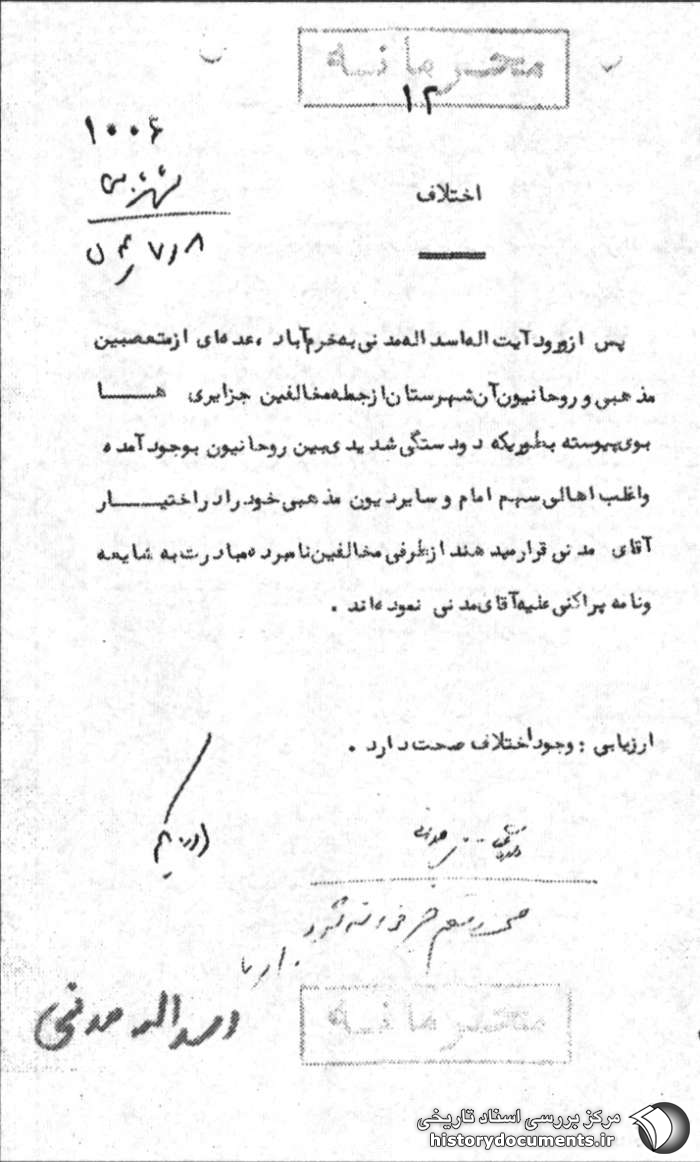 محرمانه
۱۲
۱۰۰۶
اختلاف
پس از ورود آیت اله اسد اله مدنی به خرم آباد ، عده ای از متعصبین
مذهبی و روحانیون آن شهرستان از جمله مخالفین جزایری هــا
بوی پیوسته بطوریکه دودستگی شدیدی بین روحانیون بوجود آمده
و اغلب اهالی سهم امام و سایر دیون مذهبی خود را در اختیــار
آقای مدنی قرار میدهند از طرفی مخالفین نامبرده مبادرت به شایعه
و نامه پراکنی علیه آقای مدنی نموده اند .
ارزیابی : وجود اختلاف صحت دارد .
اسداله مدنی
محرمانه
مرکز بررسی اسناد تاریخی
historydocuments.ir